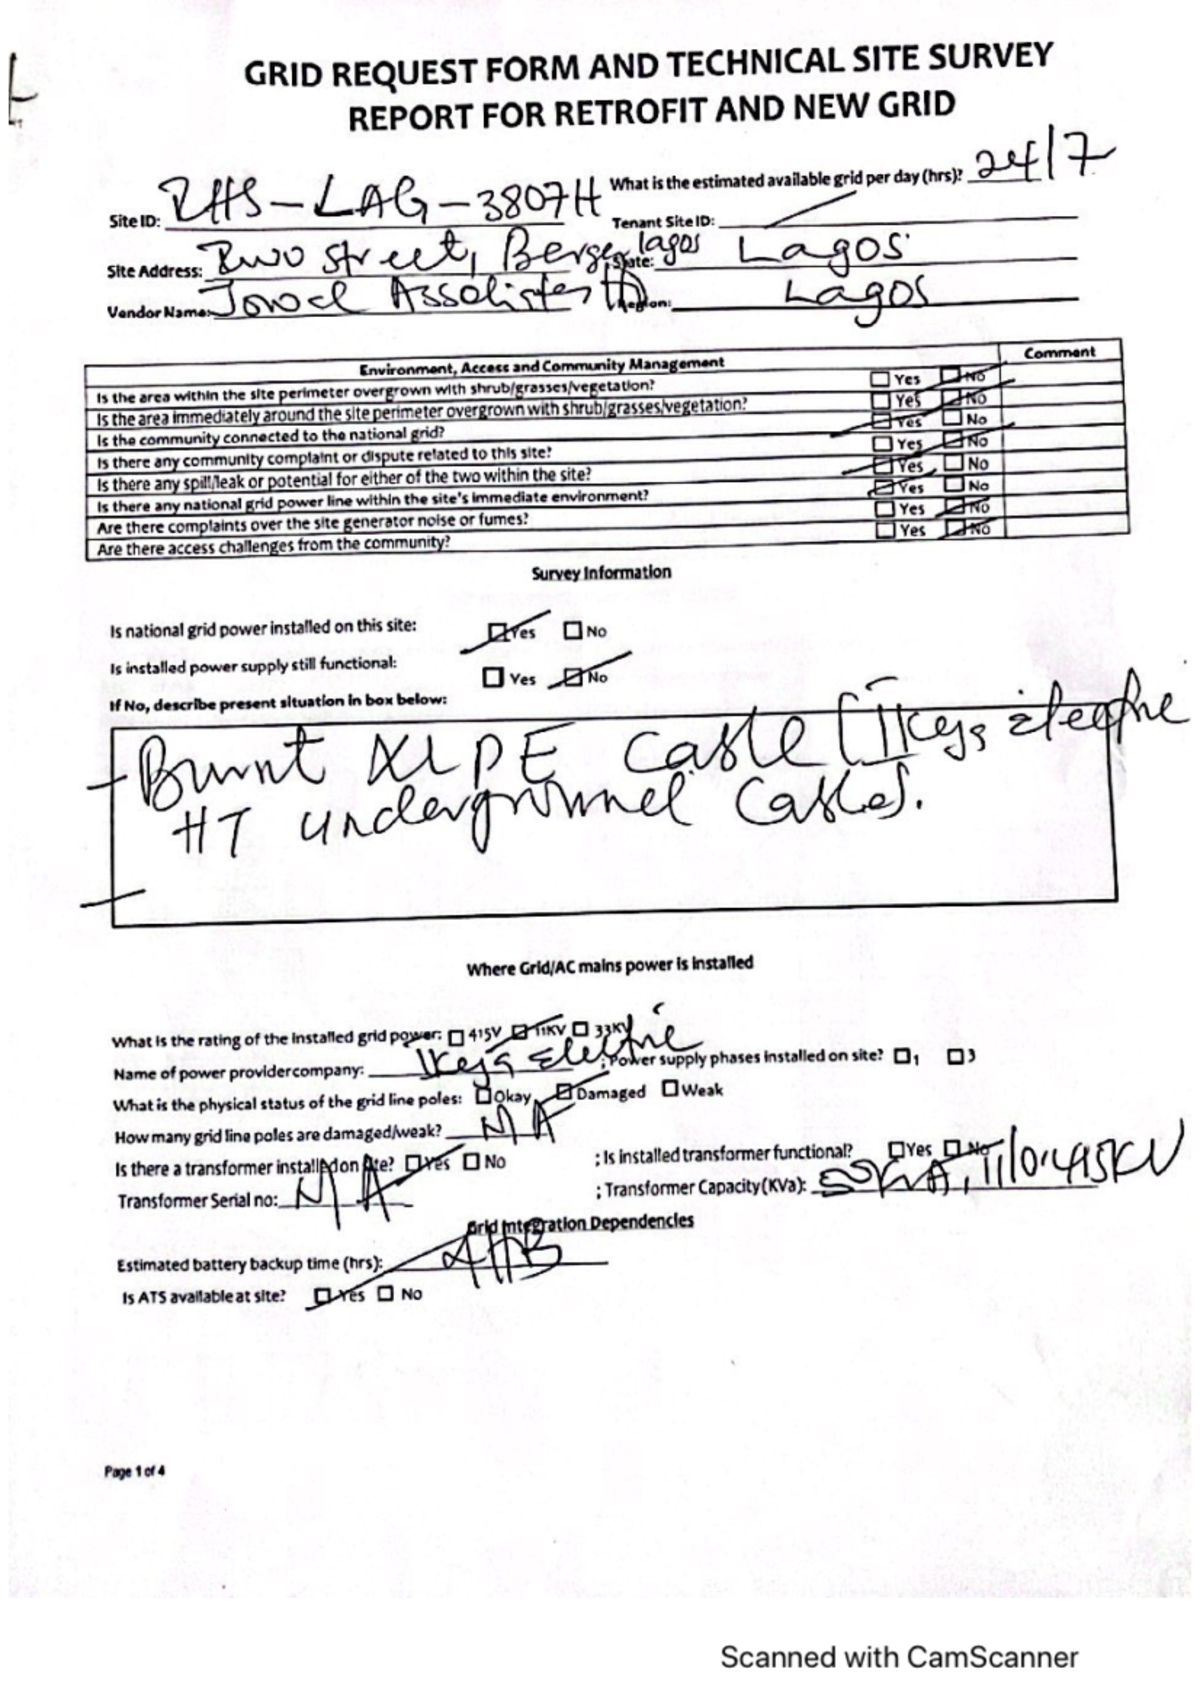 GRID REQUEST FORM AND TECHNICAL SITE SURVEY
REPORT FOR RETROFIT AND NEW GRID
What is the estimated available grid per day (hrs)? 24/7
Site ID: IHS-LAG-3807H Tenant Site ID:
Site Address: street, Berger, lagos State: Lagos
Vendor Name: Region: Lagos
Environment, Access and Community Management Comment
Is the area within the site perimeter overgrown with shrub/grasses/vegetation? Yes No
Is the area immediately around the site perimeter overgrown with shrub/grasses/vegetation? Yes No
Is the community connected to the national grid? Yes No
Is there any community complaint or dispute related to this site? Yes No
Is there any spill/leak or potential for either of the two within the site? Yes No
Is there any national grid power line within the site's immediate environment? Yes No
Are there complaints over the site generator noise or fumes? Yes No
Are there access challenges from the community? Yes No
Survey Information
Is national grid power installed on this site: Yes No
Is installed power supply still functional: Yes No
If No, describe present situation in box below:
Burnt XLPE Cable [Ikeja electric
HT underground Cable].
Where Grid/AC mains power is installed
What is the rating of the installed grid power: 415V 11KV 33KV
Name of power providercompany: Ikeja Electric ; Power supply phases installed on site? 1 3
What is the physical status of the grid line poles: Okay Damaged Weak
How many grid line poles are damaged/weak? N A
Is there a transformer installed on site? Yes No ; Is installed transformer functional? Yes No
Transformer Serial no: N A ; Transformer Capacity(KVa): KVA, 11/0.415KV
Grid Integration Dependencies
Estimated battery backup time (hrs):
Is ATS available at site? Yes No
Page 1 of 4
Scanned with CamScanner